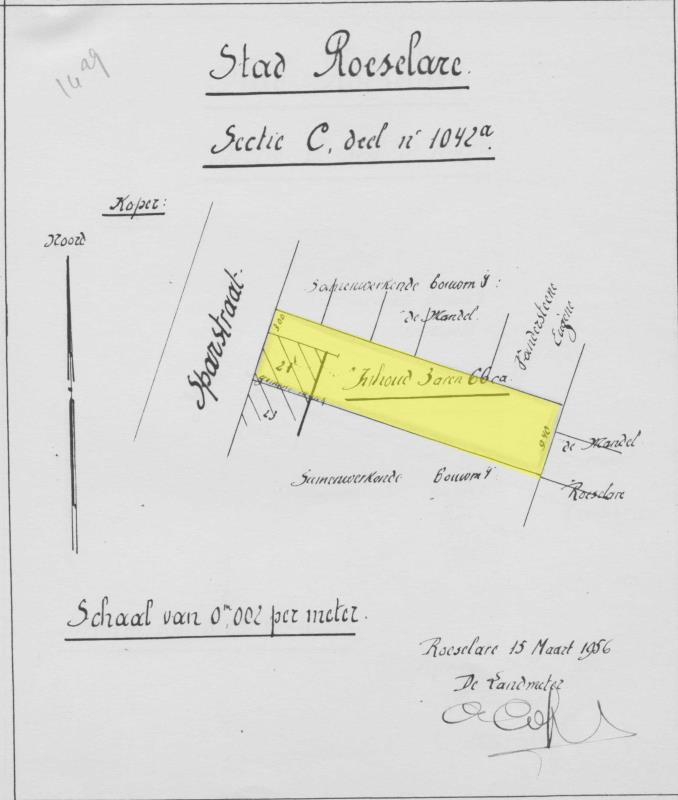 Stad Roeselare.
Sectie C, deel n° 1042a.
Koper:
Noord
Sparstraat
Samenwerkende bouwm y:
de Mandel.
Vandersteene
Eugène
3.00
Inhoud 3 aren 68 ca.
23
9.40
de Mandel
Samenwerkende bouwm y.
Roeselare
Schaal van 0m,002 per meter.
Roeselare 15 Maart 1956
De Landmeter